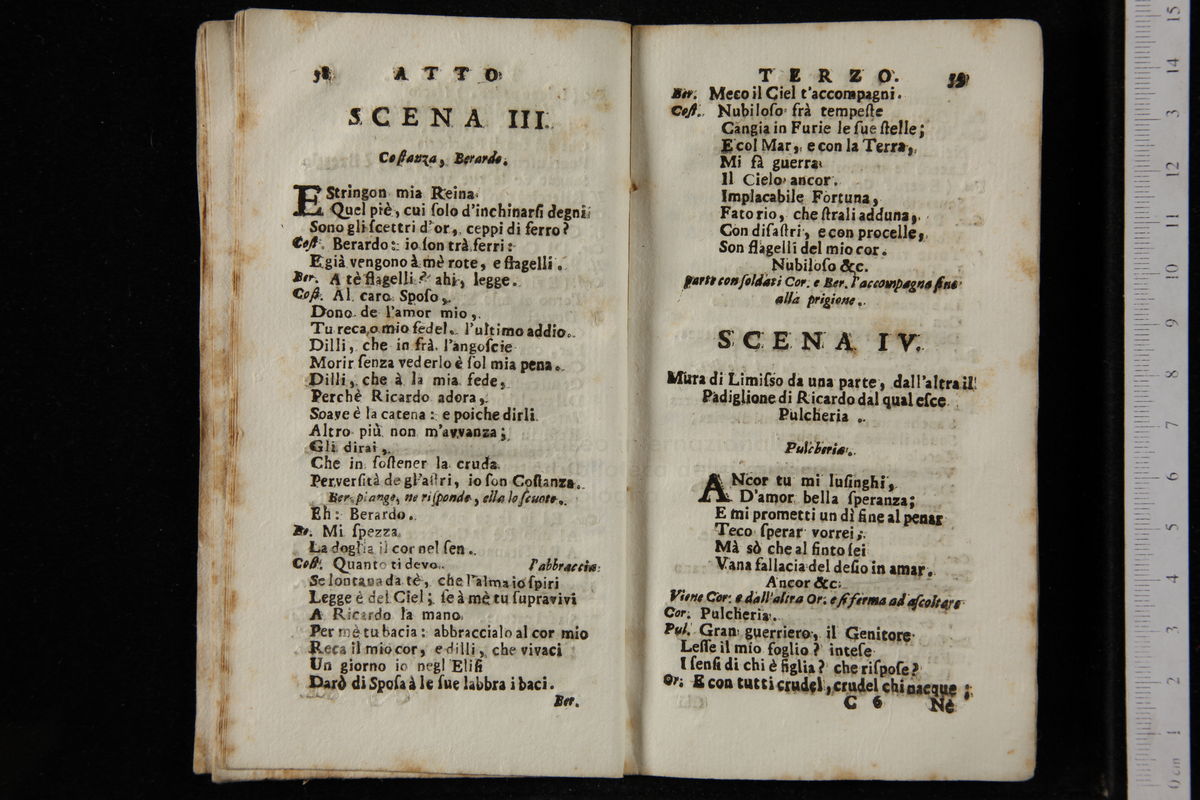 58 ATTO
SCENA III.
Costanza, Berardo.
EStringon mia Reina
Quel piè, cui ſolo d'inchinarſi degni
Sono gli ſcettri d'or, ceppi di ferro?
Coſt. Berardo: io ſon trà ferri:
E già vengono à mè rote, e flagelli.
Ber. A tè flagelli? ahi, legge.
Coſt. Al caro Spoſo,
Dono de l'amor mio,
Tu reca, o mio fedel, l'ultimo addio.
Dilli, che in frà l'angoſcie
Morir ſenza vederlo è ſol mia pena.
Dilli, che à la mia fede,
Perchè Ricardo adora,
Soave è la catena: e poiche dirli
Altro più non m'avvanza;
Gli dirai,
Che in ſoſtener la cruda
Perverſità de gl'aſtri, io ſon Coſtanza.
Ber. piange, ne riſponde, ella lo ſcuote.
Eh: Berardo.
Be. Mi ſpezza
La doglia il cor nel ſen.
Coſt. Quanto ti devo. l'abbraccia:
Se lontana da tè, che l'alma io ſpiri
Legge è del Ciel; ſe à mè tu ſupravivi
A Ricardo la mano
Per mè tu bacia: abbraccialo al cor mio
Reca il mio cor, e dilli, che vivaci
Un giorno io negl'Eliſi
Darò di Spoſa à le ſue labbra i baci.
Ber.
TERZO. 59
Ber. Meco il Ciel t'accompagni.
Coſt. Nubiloſo frà tempeſte
Cangia in Furie le ſue ſtelle;
E col Mar, e con la Terra,
Mi fà guerra
Il Cielo ancor.
Implacabile Fortuna,
Fato rio, che ſtrali adduna,
Con diſaſtri, e con procelle,
Son flagelli del mio cor.
Nubiloſo &c.
parte con ſoldati Cor. e Ber. l'accompagna fino
alla prigione.
SCENA IV.
Mura di Limiſso da una parte, dall'altra il
Padiglione di Ricardo dal qual eſce
Pulcheria.
Pulcheria.
ANcor tu mi luſinghi,
D'amor bella ſperanza;
E mi prometti un dì fine al penar
Teco ſperar vorrei;
Mà sò che al finto ſei
Vana fallacia del deſio in amar.
Ancor &c.
Viene Cor. e dall'altra Or. e ſi ferma ad aſcoltare
Cor. Pulcheria.
Pul. Gran guerriero, il Genitore
Leſſe il mio foglio? inteſe
I ſenſi di chi è figlia? che riſpoſe?
Or. E con tutti crudel, crudel chi nacque;
C 6 Nè